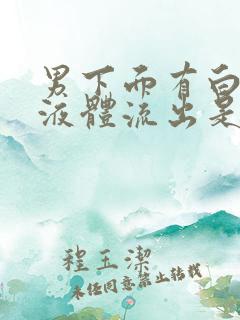 男下面有白
液體流出是
程玉潔
未经同意禁止转载